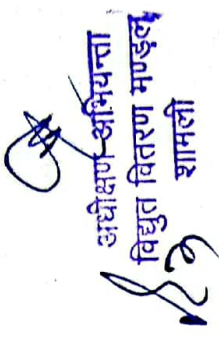 अधीक्षण अभियन्ता
विद्युत वितरण मण्डल,
शामली